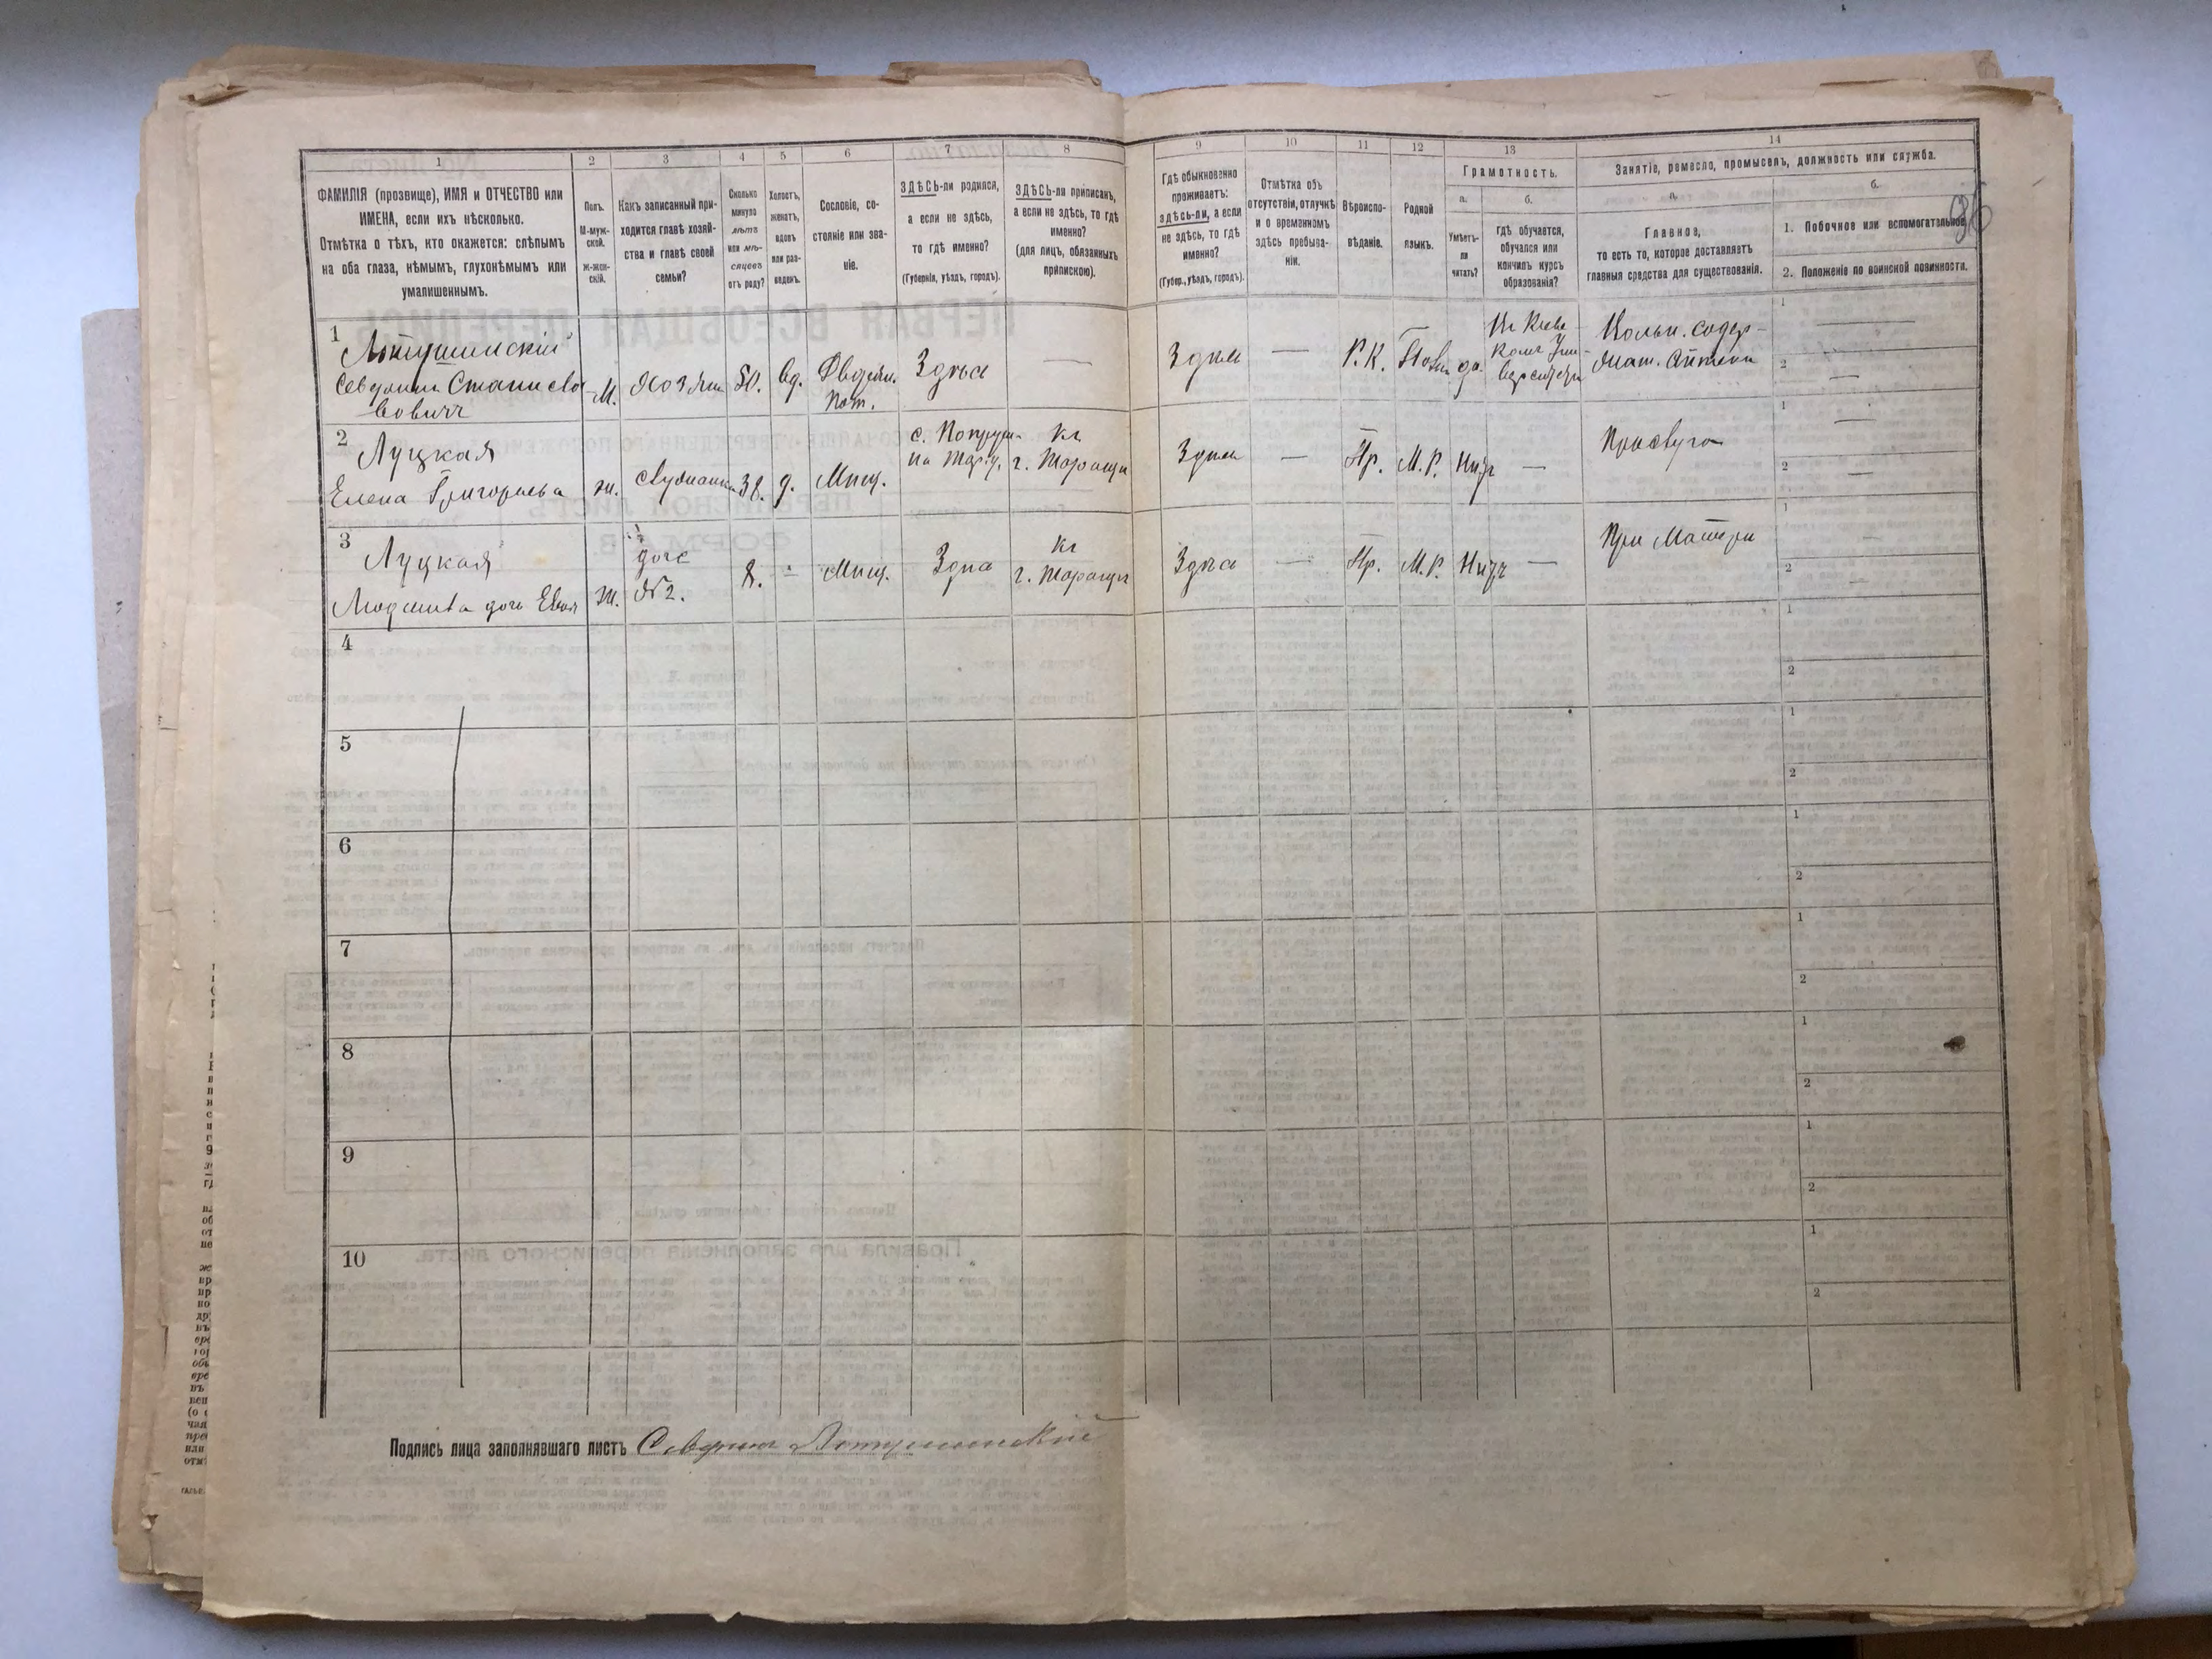 1 2 3 4 5 6 7 8 9 10 11 12 13 14
ФАМИЛІЯ (прозвище), ИМЯ и ОТЧЕСТВО или
ИМЕНА, если ихъ нѣсколько.
Отмѣтка о тѣхъ, кто окажется: слѣпымъ
на оба глаза, нѣмымъ, глухонѣмымъ или
умалишеннымъ.
Полъ.
М-муж-
ской.
Ж-жен-
скій.
Какъ записанный при-
ходится главѣ хозяй-
ства и главѣ своей
семьи?
Сколько
минуло
лѣтъ
или мѣ-
сяцевъ
отъ роду?
Холостъ,
женатъ,
вдовъ
или раз-
веденъ.
Сословіе, со-
стояніе или зва-
ніе.
ЗДѢСЬ-ли родился,
а если не здѣсь,
то гдѣ именно?
(Губернія, уѣздъ, городъ).
ЗДѢСЬ-ли приписанъ,
а если не здѣсь, то гдѣ
именно?
(для лицъ, обязанныхъ
припискою).
Гдѣ обыкновенно
проживаетъ:
здѣсь-ли, а если
не здѣсь, то гдѣ
именно?
(Губер., уѣздъ, городъ).
Отмѣтка объ
отсутствіи, отлучкѣ
и о временномъ
здѣсь пребыва-
ніи.
Вѣроиспо-
вѣданіе.
Родной
языкъ.
Грамотность.
а.
Умѣетъ-
ли
читать?
б.
Гдѣ обучается,
обучался или
кончилъ курсъ
образованія?
Занятіе, ремесло, промыселъ, должность или служба.
а.
Главное,
то есть то, которое доставляетъ
главныя средства для существованія.
б.
1. Побочное или вспомогательное.
2. Положеніе по воинской повинности.
36
1
Северинъ Станисла
вовичъ
М. Хозяин 50. вд. Дворян.
Пот.
Здѣсь — Здѣсь — Р.К. да
1
2
2 Луцкая
Елена Григорьева
ж. 38. д. Мѣщ.
г. Таращи
Здѣсь — Пр. М.Р. Нѣтъ — Прислуга
1
2
3 Луцкая
ж. дочь
№2.
8. - Мѣщ. Здѣсь
г. Таращи
Здѣсь — Пр. М.Р. Нѣтъ — При Матери
1
2
4
1
2
5
1
2
6
1
2
7
1
2
8
1
2
9
1
2
10
1
2
Подпись лица заполнявшаго листъ Северинъ